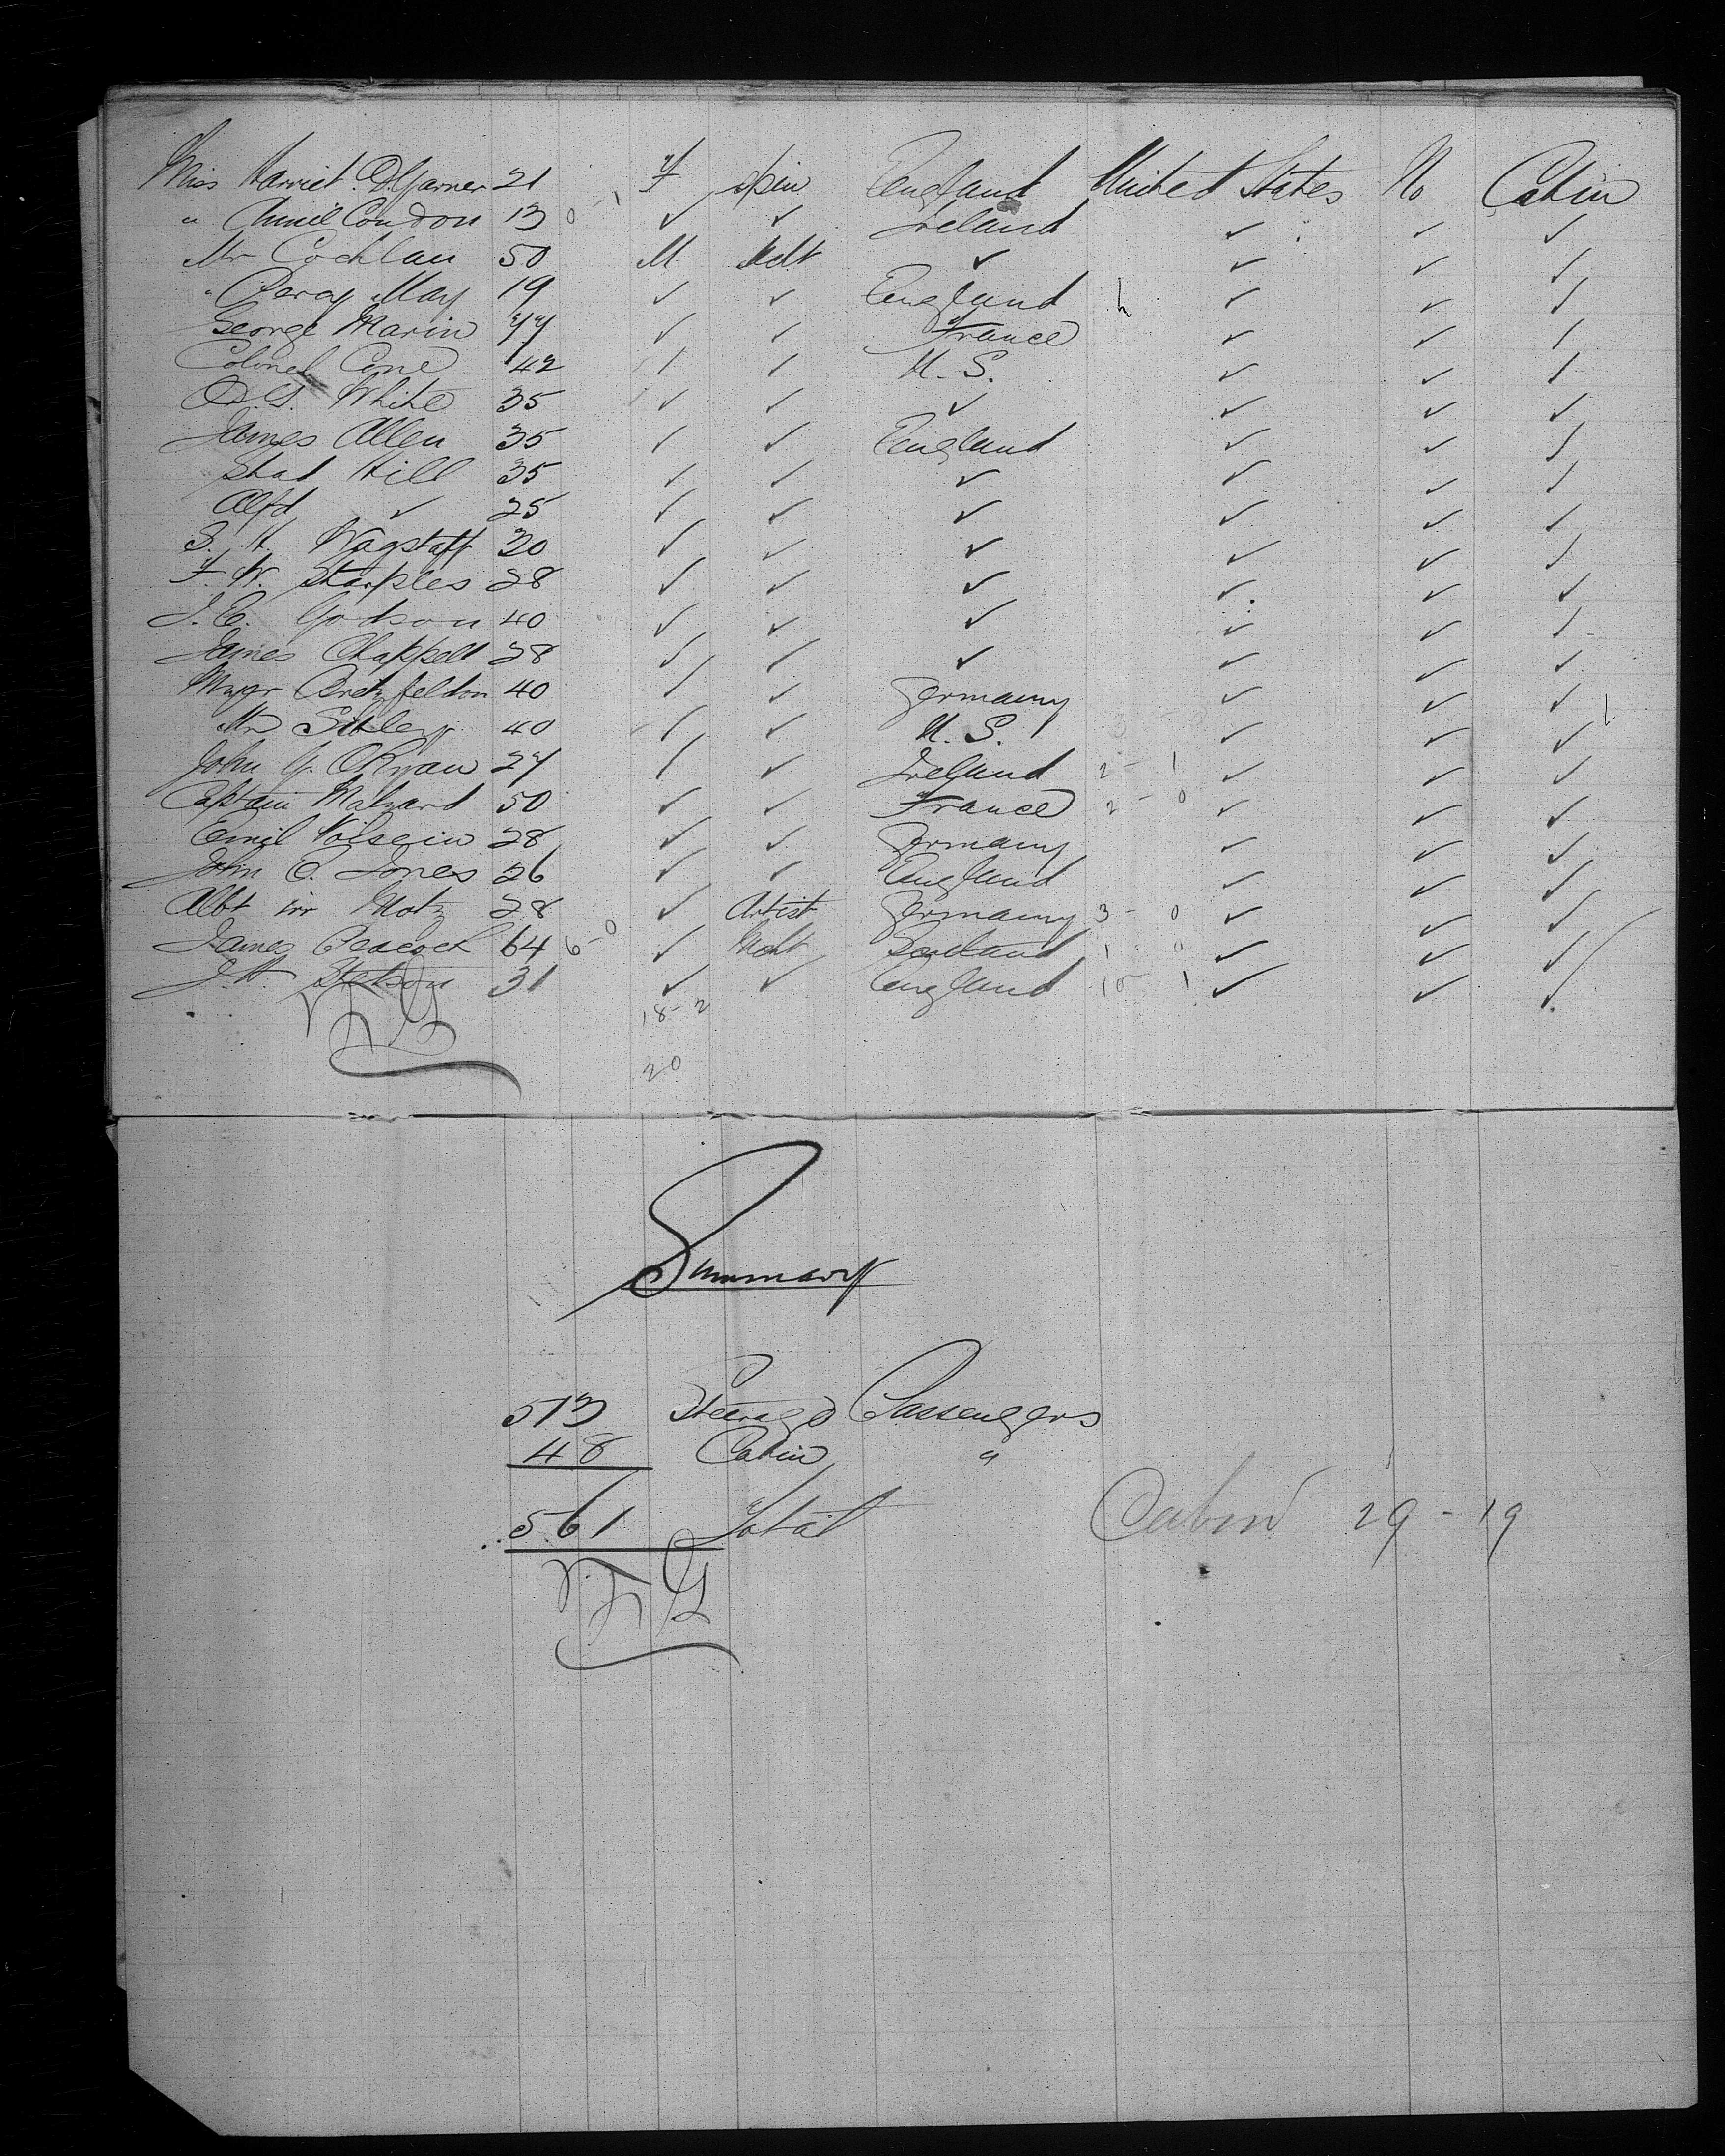 Miss Harriet D. Garner 21 F spin England United States No Cabin
" Annie Condon 13 0 - 1 ✓ ✓ Ireland ✓ ✓ ✓
Mr Cochlan 50 M Mcht ✓ ✓ ✓ ✓
" Percy May 19 ✓ ✓ England ✓ ✓ ✓
George Marin 44 ✓ ✓ France ✓ ✓ ✓
Colonel Cone 42 ✓ ✓ U. S. ✓ ✓ ✓
White 35 ✓ ✓ ✓ ✓ ✓ ✓
James Allen 35 ✓ ✓ England ✓ ✓ ✓
Hill 35 ✓ ✓ ✓ ✓ ✓ ✓
Alfd ✓ 25 ✓ ✓ ✓ ✓ ✓ ✓
S. H. Wagstaff 30 ✓ ✓ ✓ ✓ ✓ ✓
F. W. Sharples 28 ✓ ✓ ✓ ✓ ✓ ✓
J. C. Godson 40 ✓ ✓ ✓ ✓ ✓ ✓
James Chappell 28 ✓ ✓ ✓ ✓ ✓ ✓
40 ✓ ✓ Germany ✓ ✓ ✓
Mr Sibley 40 ✓ ✓ U. S. 3 ✓ ✓ ✓
John G. ORyan 27 ✓ ✓ Ireland 2 - 1 ✓ ✓ ✓
Captain Malzard 50 ✓ ✓ France 2 - 0 ✓ ✓ ✓
Emil 28 ✓ ✓ Germany ✓ ✓ ✓
John C. Jones 26 ✓ ✓ England ✓ ✓ ✓
Albt Motz 28 ✓ Artist Germany 3 - 0 ✓ ✓ ✓
James Peacock 64 6 - 0 ✓ Mcht Scotland 1 0 ✓ ✓ ✓
J. H. Stetson 31 ✓ ✓ England 10 1 ✓ ✓ ✓
18 - 2
20
Summary
513 Steerage Passengers
48 Cabin "
561 Total
Cabin 29 - 19